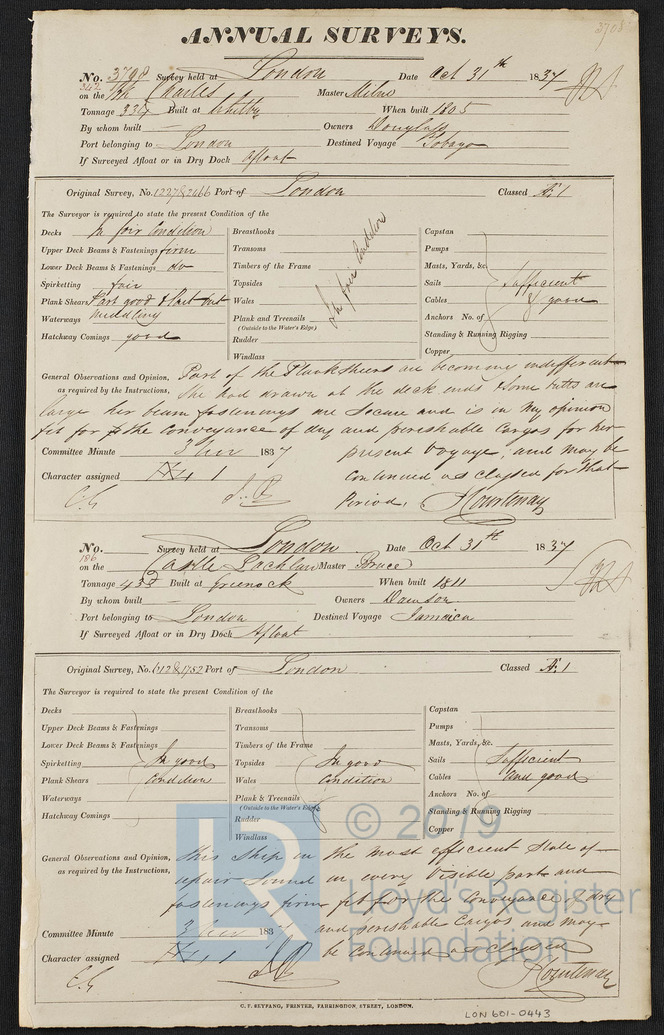 3708
ANNUAL SURVEYS.
No. 3708 Survey held at London Date Oct 31th 1837
on the Bk Charles Master Milne
Tonnage 334 Built at Whitby When built 1805
By whom built — Owners Douglass
Port belonging to London Destined Voyage Tobago
If Surveyed Afloat or in Dry Dock Afloat
Original Survey, No. 1227 & 2466 Port of London Classed Æ 1
The Surveyor is required to state the present Condition of the
Decks In fair Condition
Upper Deck Beams & Fastenings firm
Lower Deck Beams & Fastenings do
Spirketting fair
Plank Shears Part good & Part but
Waterways middling
Hatchway Comings good
Breasthooks
Transoms
Timbers of the Frame
Topsides
Wales
Plank and Treenails
(Outside to the Water's Edge)
Rudder
Windlass
In fair Condition
Capstan
Pumps
Masts, Yards, &c.
Sails Sufficient
Cables & good
Anchors No. of
Standing & Running Rigging
Copper
General Observations and Opinion, Part of the Planksheers are becoming indifferent
as required by the Instructions, She had drawn at the deck ends & some butts are
large her beam fastenings are secure and is in my opinion
fit for the conveyance of dry and perishable Cargos for her
Committee Minute 3 Nov 1837 present Voyage, and may be
Character assigned Æ 1 continued as classed for that
Period. Courtenay
No. Survey held at London Date Oct 31th 1837
186
on the Castle Lachlan Master Bruce
Tonnage 433 Built at Greenock When built 1811
By whom built Owners Dawson
Port belonging to London Destined Voyage Jamaica
If Surveyed Afloat or in Dry Dock Afloat
Original Survey, No. 612 & 1752 Port of London Classed Æ 1
The Surveyor is required to state the present Condition of the
Decks
Upper Deck Beams & Fastenings
Lower Deck Beams & Fastenings
Spirketting In good
Plank Shears Condition
Waterways
Hatchway Comings
Breasthooks
Transoms
Timbers of the Frame
Topsides In good
Wales Condition
Plank & Treenails
(Outside to the Water's Edge)
Rudder
Windlass
Capstan
Pumps
Masts, Yards, &c.
Sails Sufficient
Cables and good
Anchors No. of
Standing & Running Rigging
Copper
General Observations and Opinion, this Ship in the most efficient State of
as required by the Instructions, repair sound in every Visible part and
fastenings firm fit for the Conveyance of dry
Committee Minute 3 Nov 1837 and perishable Cargos and may
Character assigned Æ 1 be continued as classed
Courtenay
C. F. SEYFANG, PRINTER, FARRINGDON, STREET, LONDON.
LON 601-0443
LR
© 2019
Lloyd's Register
Foundation